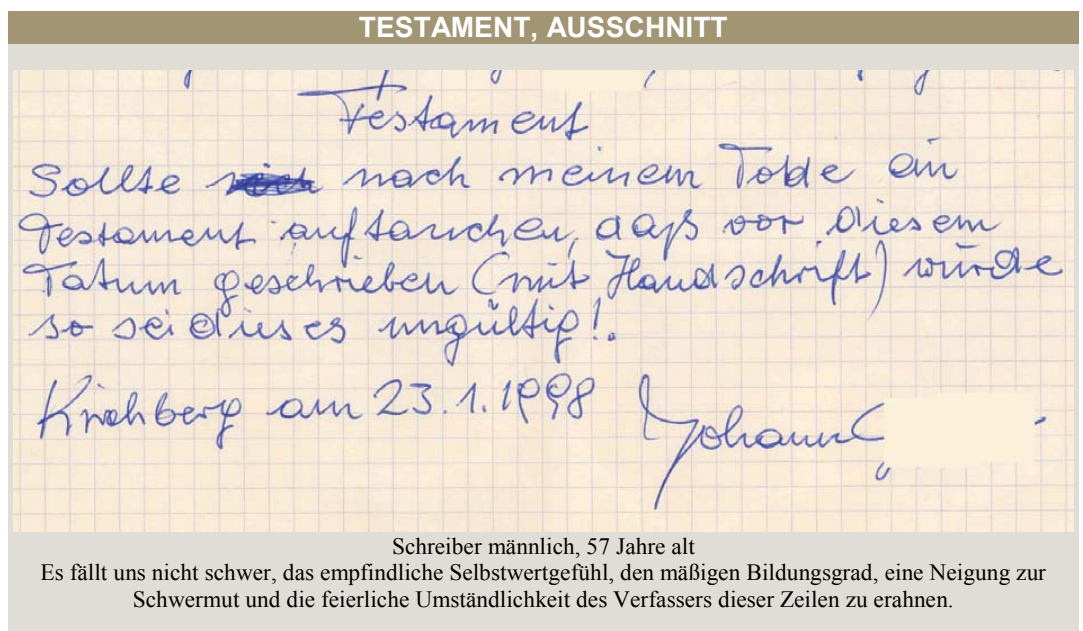 TESTAMENT, AUSSCHNITT
Testament
Sollte nach meinem Tode ein
Testament auftauchen, daß vor diesem
Tatum geschrieben (mit Handschrift) wurde
so sei dieses ungültig!.
Kirchberg am 23.1.1998 Johann
Schreiber männlich, 57 Jahre alt
Es fällt uns nicht schwer, das empfindliche Selbstwertgefühl, den mäßigen Bildungsgrad, eine Neigung zur
Schwermut und die feierliche Umständlichkeit des Verfassers dieser Zeilen zu erahnen.